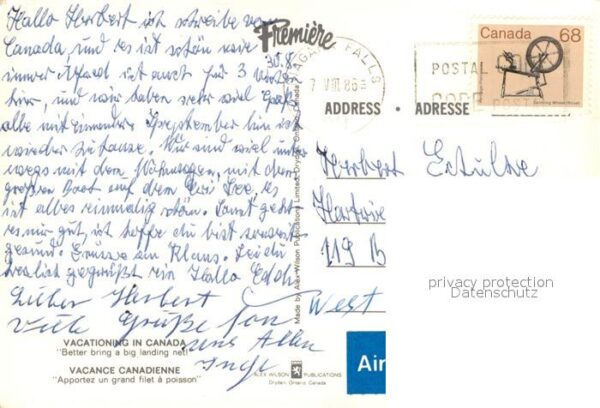 Hallo Herbert ich schreibe von
Canada, und es ist schön wie
30.8.
immer. Alfred ist auch für 3 Wochen
hier, und wir haben sehr viel Spaß
alle mit einander. September bin ich
wieder zu Hause. Wir sind viel unter
wegs mit dem Wohnwagen, mit dem
großen Boot auf dem Eri See, es
ist alles einmalig schön. Sonst geht
es mir gut, ich hoffe du bist soweit
gesund. Grüsse an Klaus. Sei du
herzlich gegrüßt ein Hallo
Lieber Herbert
Viele Grüße von
uns Allen
Inge
Première
Canada 68
NIAGARA FALLS
VIII 86
POSTAL CODE
POSTAL
ADDRESS · ADRESSE
Herbert
119 B
West
privacy protection
Datenschutz
Made by Alex Wilson Publications Limited, Dryden, Ontario, Canada
VACATIONING IN CANADA
"Better bring a big landing net!"
VACANCE CANADIENNE
"Apportez un grand filet à poisson"
ALEX WILSON PUBLICATIONS
Dryden, Ontario, Canada
Air